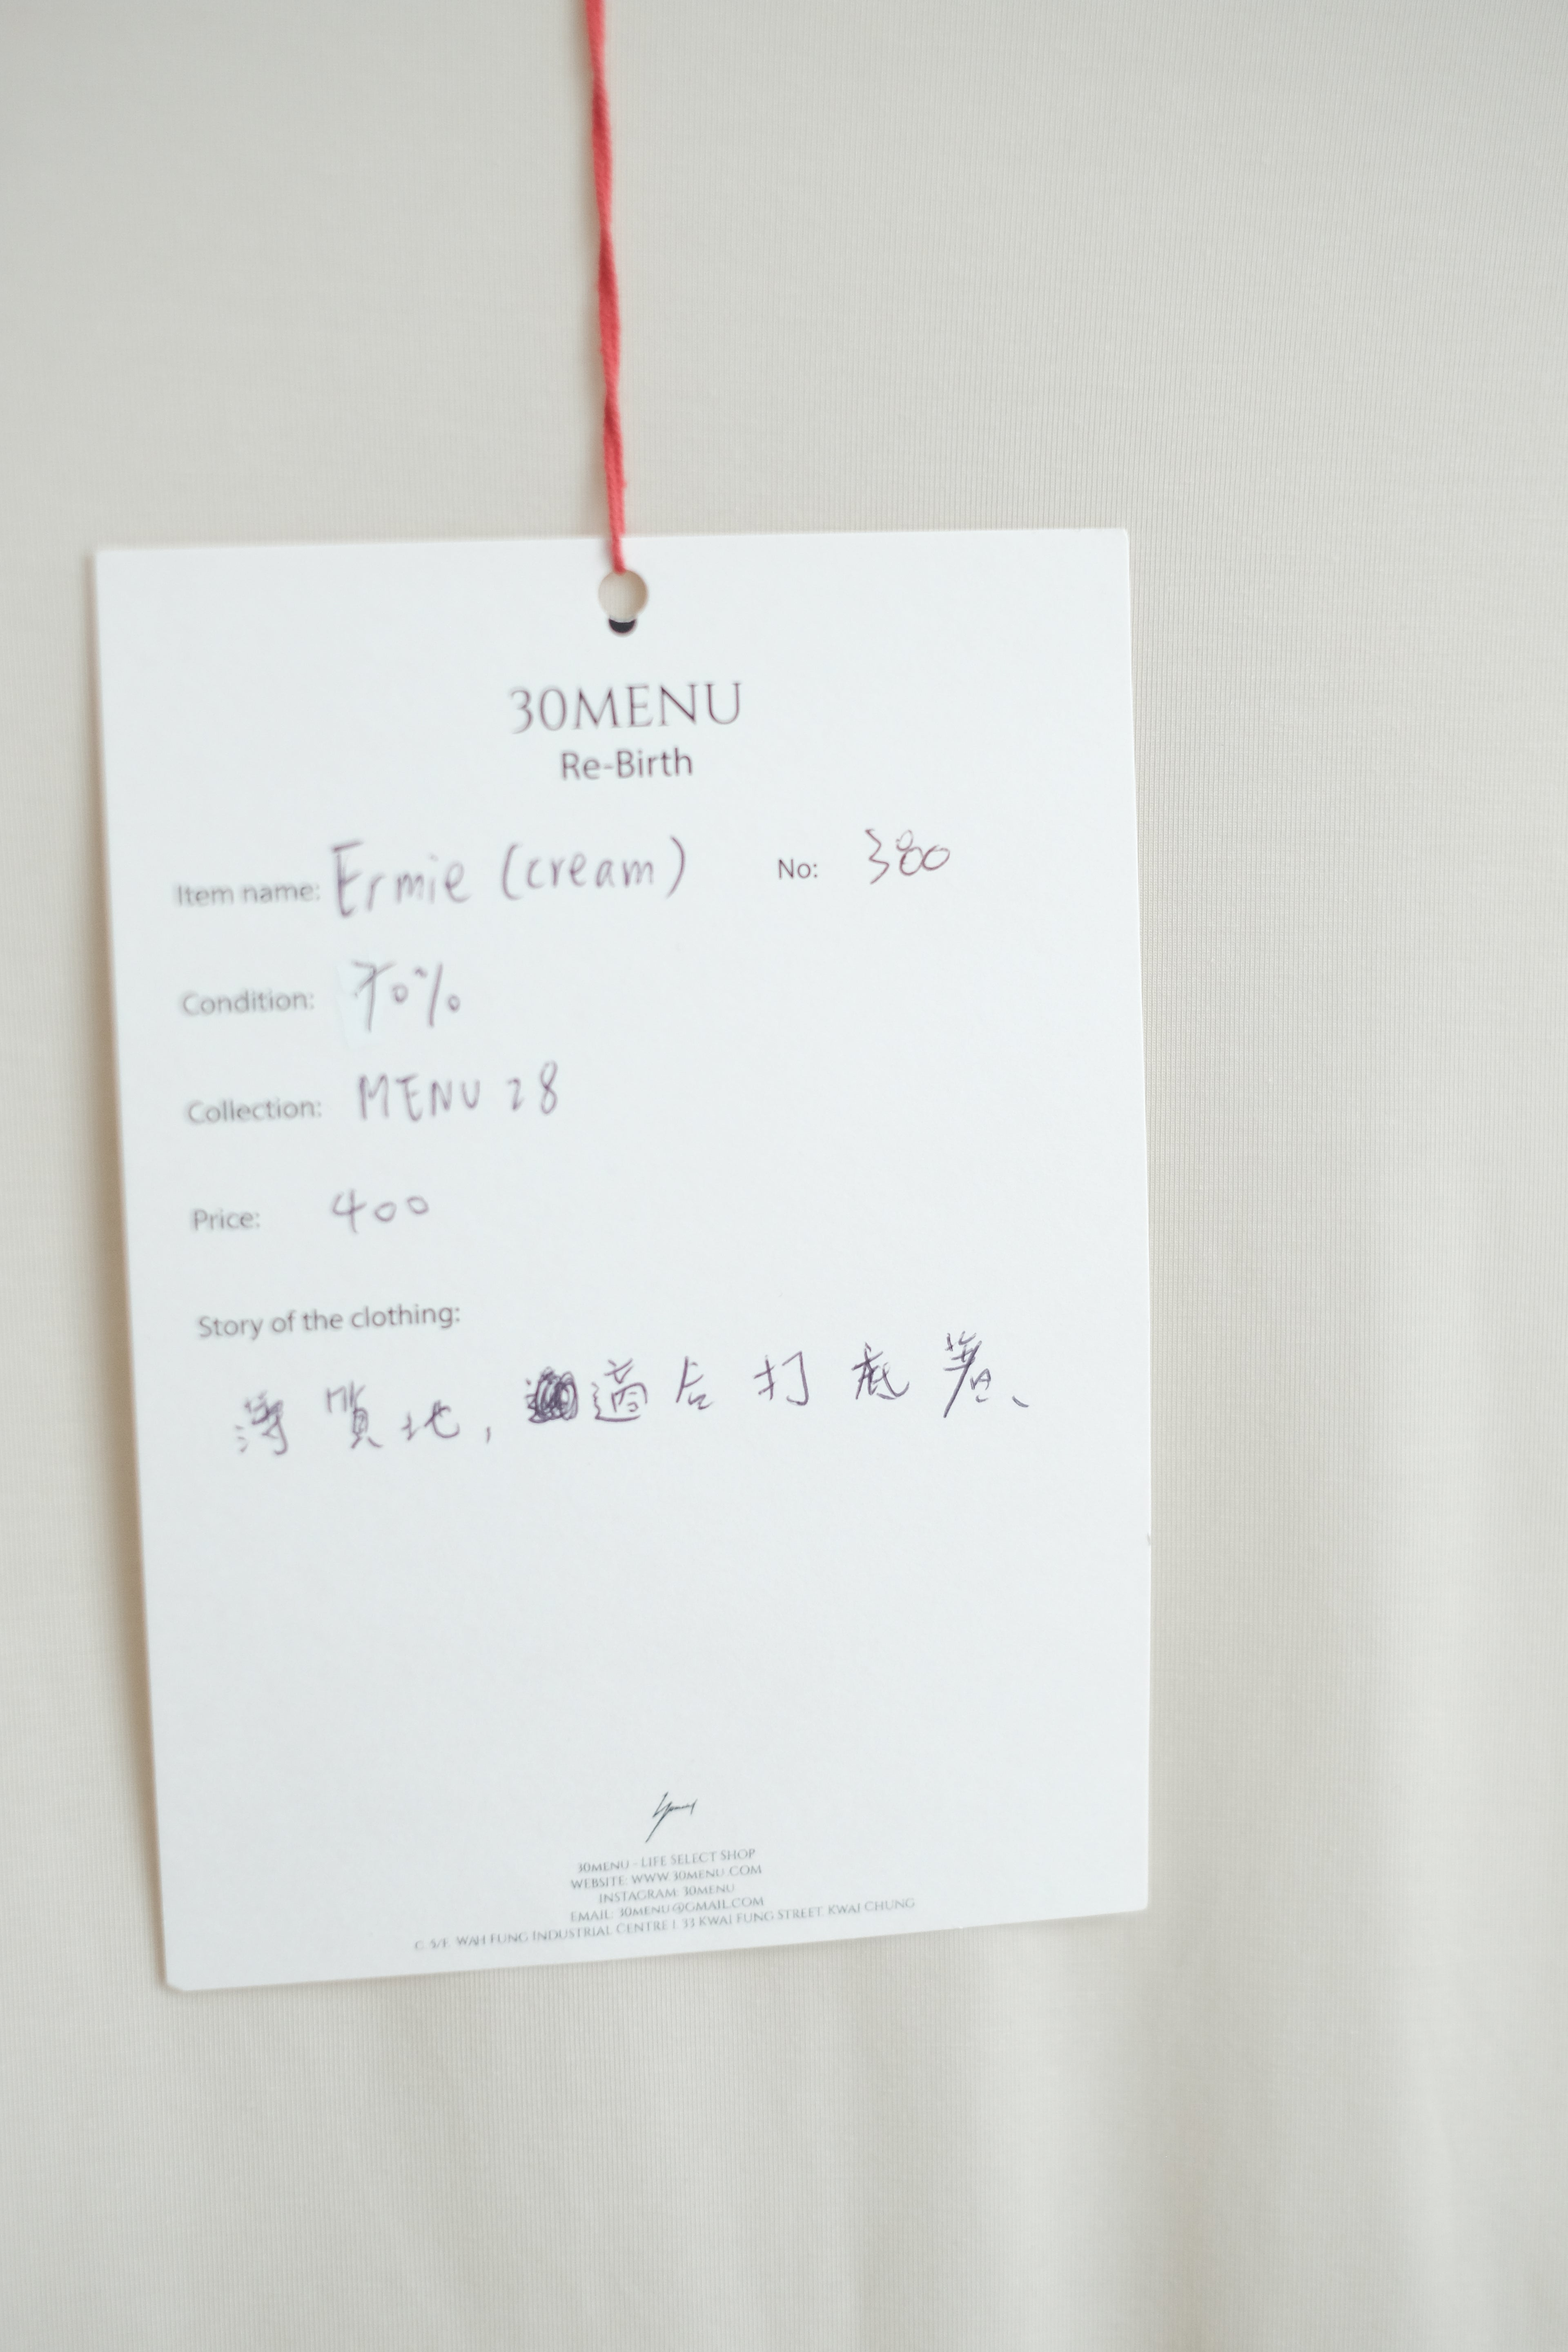 30MENU
Re-Birth
Item name: Ermie (cream) No: 380
Condition: 70%
Collection: MENU 28
Price: 400
Story of the clothing:
薄質地, 適合打底著、
30MENU - LIFE SELECT SHOP
WEBSITE: WWW.30MENU.COM
INSTAGRAM: 30MENU
EMAIL: 30MENU@GMAIL.COM
C, 5/F, WAH FUNG INDUSTRIAL CENTRE | 33 KWAI FUNG STREET, KWAI CHUNG